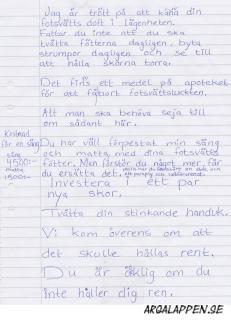 Jag är trött på att känna din
fotsvetts doft i lägenheten.
Fattar du inte att du ska
tvätta fötterna dagligen, byta
strumpor dagligen och se till
att hålla skorna torra.
Det finns ett medel på apoteket
för att få bort fotsvettslukten.
Att man ska behöva säja till
om sådant här.
Kostnad
för en säng
säng
4500:-
matta
1500:-
Du har väl förpestat min säng
och matta med dina fotsvetts
fötter. Men förstör du något mer får
du ersätta det.
Investera i ett par
nya skor.
Tvätta din stinkande handuk.
Vi kom överens om att
det skulle hållas rent.
Du är äcklig om du
inte håller dig ren.
ARGALAPPEN.SE